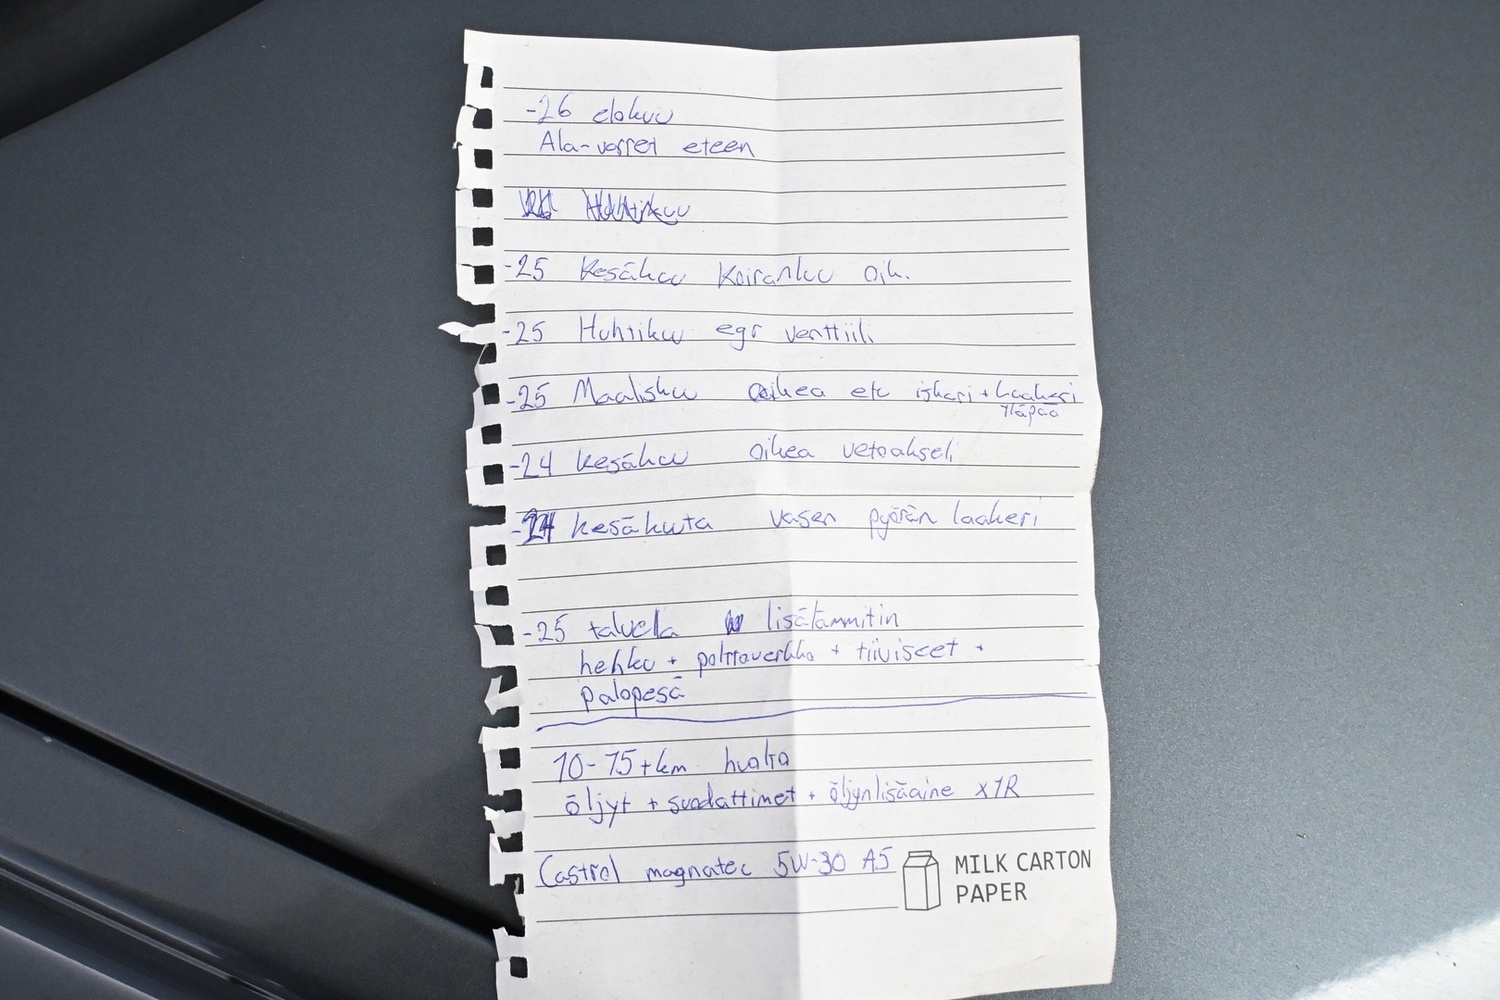 -26 elokuu
Ala-varret eteen
Huhtikuu
-25 Kesäkuu Koiranluu oik.
-25 Huhtikuu egr venttiili
-25 Maalisku oikea etu iskari + laakeri
yläpää
-24 kesäkuu oikea vetoakseli
-24 kesäkuuta vasen pyörän laakeri
-25 talvella lisälämmitin
hehku + polttoverkko + tiivisteet +
palopesä
10-15 tkm huolto
öljyt + suodattimet + öljynlisäaine X1R
Castrol magnatec 5W-30 A5
MILK CARTON
PAPER